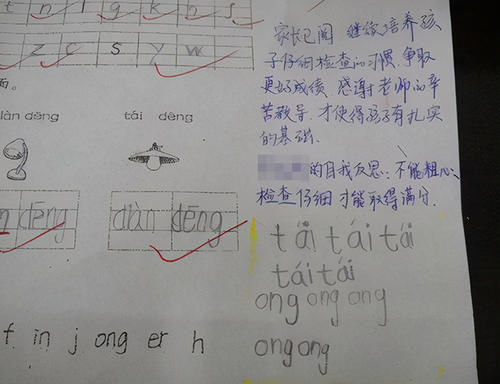 n l g k h f
z c s y w
面。
diàn dēng tái dēng
dēng diàn dēng
f in j ong er h
家长已阅 继续培养孩
子仔细检查的习惯,争取
更好成绩 感谢老师的辛
苦教导,才使得孩子有扎实
的基础.
的自我反思:不能粗心,
检查仔细才能取得满分.
tái tái tái
tái tái
ong ong ong
ong ong